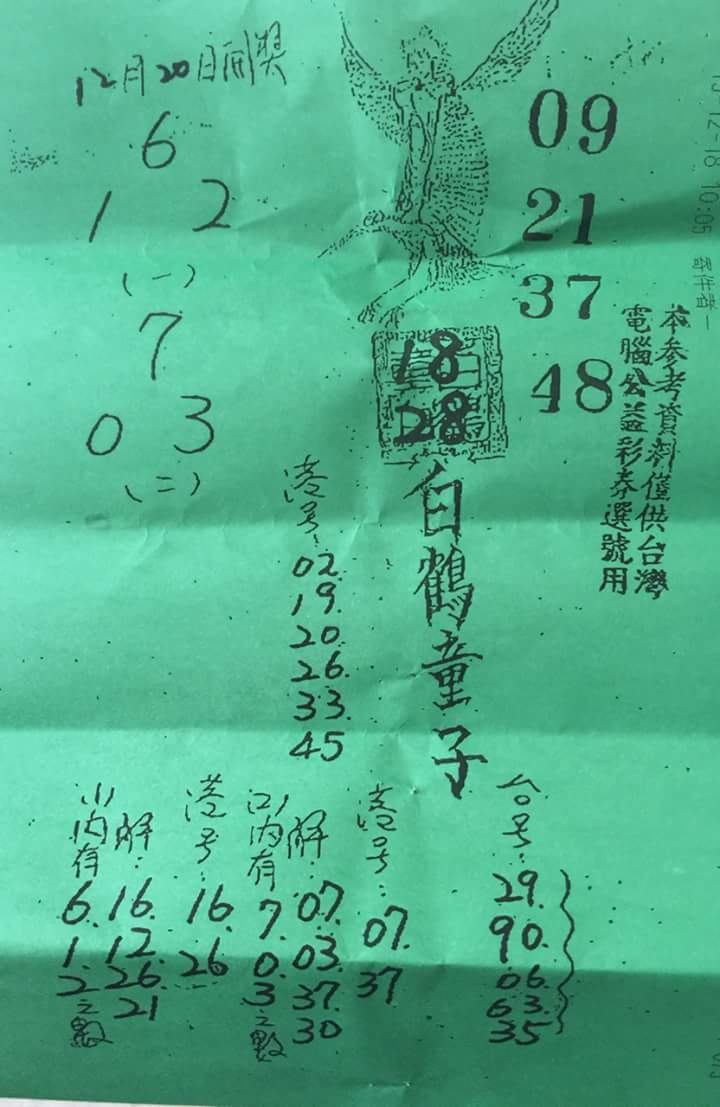 12月20日開獎
6
1 2
(一)
7
0 3
(二)
09
21
37
48
本參考資料僅供台灣
電腦公益彩券選號用
12-18 10:05 寄件者
18
28
白鶴童子
港号:
02.
19.
20.
26.
33.
45
台号:
29.
90.
06.
63.
35
港号:
07.
37
解:
07.
03.
37.
30
(二)內有
7.
0.
3之數
港号:
16.
26
解:
16.
12.
26.
21
(一)內有
6.
1.
2之數